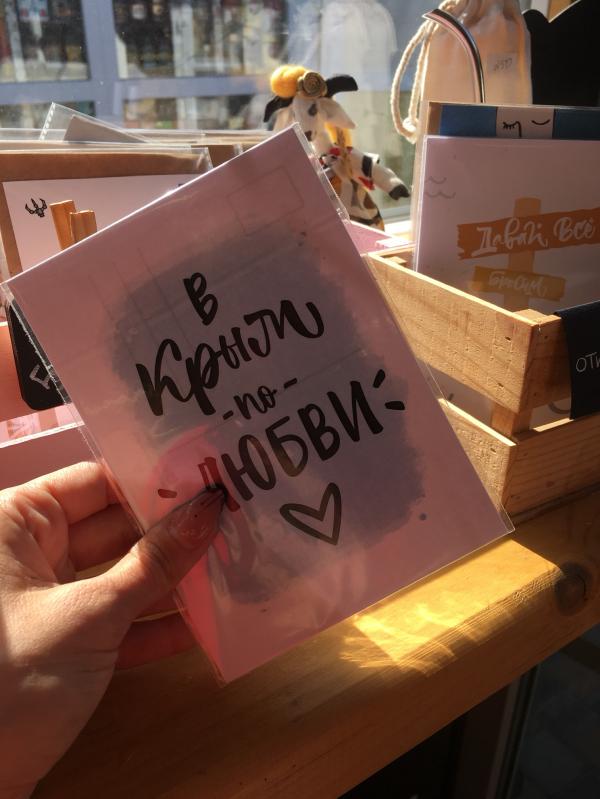 В
Крым
-по-
ЛЮБВИ
Давай Всё
Бросим